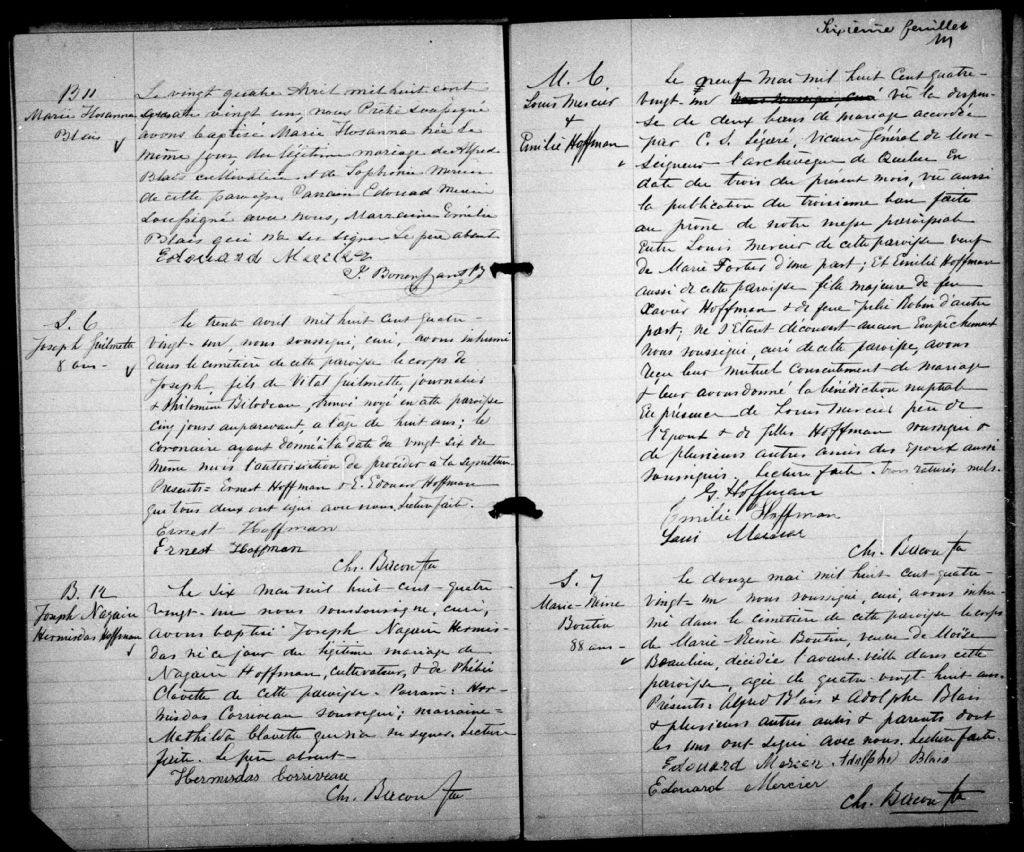 B 11
Marie Hosanna
Blais
Le vingt quatre Avril mil huit cent
quatre vingt un, nous Prêtre soussigné
avons baptisé Marie Hosanna née le
même jour du légitime mariage de Alfred
Blais cultivateur et de Sophronie Mercier
de cette paroisse. Parrain Edouard Mercier
soussigné avec nous, Marraine Emélie
Blais qui n'a su signer Le père absent
Edouard Mercier
J. Bonenfant Ptr
S. 6
Joseph Guilmette
8 ans -
Le trente avril mil huit cent quatre-
vingt-un, nous soussigné, curé, avons inhumé
dans le cimetière de cette paroisse le corps de
Joseph, fils de Vital Guilmette, journalier
& Philomène Bilodeau, trouvé noyé en cette paroisse
cinq jours auparavant, a l'âge de huit ans; le
coronaire ayant donné à la date du vingt six du
même mois l'autorisation de procéder à la sépulture.
Présents = Ernest Hoffman & E. Edouard Hoffman
qui tous deux ont signé avec nous. Lecture faite.
Ernest Hoffman
Ernest Hoffman
Chs. Bacon Ptr
B. 12
Joseph Nazaire
Hermisdas Hoffman
Le six mai mil huit-cent-quatre-
vingt-un nous soussigné, curé,
avons baptisé Joseph Nazaire Hermis-
das né ce jour du légitime mariage de
Nazaire Hoffman, cultivateur, & de Phébée
Clavette de cette paroisse - Parrain: Her-
misdas Corriveau soussigné; marraine-
Mathilda Clavette qui n'a su signer. Lecture
faite. Le père absent-
Hermisdas Corriveau
Chs. Bacon Ptr
Sixième feuillet
M. 6.
Louis Mercier
&
Emilie Hoffman
Le neuf Mai mil huit Cent quatre-
vingt-un vu la dispen-
se de deux bans de mariage accordée
par C. S. Légaré, vicaire Général de Mon-
seigneur l'archevêque de Québec En
date du trois du présent mois, vu aussi
la publication du troisième ban faite
au prône de notre messe paroissiale
Entre Louis Mercier de cette paroisse veuf
de Marie Fortier d'une part; Et Emilie Hoffman
aussi de cette paroisse fille majeure de feu
Xavier Hoffman & de feue Julie Robin d'autre
part; ne s'étant découvert aucun Empêchement
Nous soussigné, curé de cette paroisse, avons
reçu leur mutuel Consentement de mariage
& leur avons donné la bénédiction nuptiale
En présence de Louis Mercier père de
l'Epoux & de Gilles Hoffman soussigné &
de plusieurs autres amis des Epoux aussi
soussignés. Lecture faite. Trois ratures nuls.
G. Hoffman
Emilie Hoffman
Louis Mercier
Chs. Bacon Ptr
S. 7
Marie-Reine
Boutin
88 ans -
Le douze mai mil huit-cent-quatre-
vingt-un nous soussigné, curé, avons inhu-
mé dans le cimetière de cette paroisse le corps
de Marie-Reine Boutin, veuve de Moïse
Beaulieu, décédée l'avant-veille dans cette
paroisse, agée de quatre-vingt huit ans.
Présents: Alfred Blais & Adolphe Blais
& plusieurs autres amis & parents dont
les uns ont signé avec nous. Lecture faite.
Edouard Mercier Adolphe Blais
Edouard Mercier
Chs. Bacon Ptr